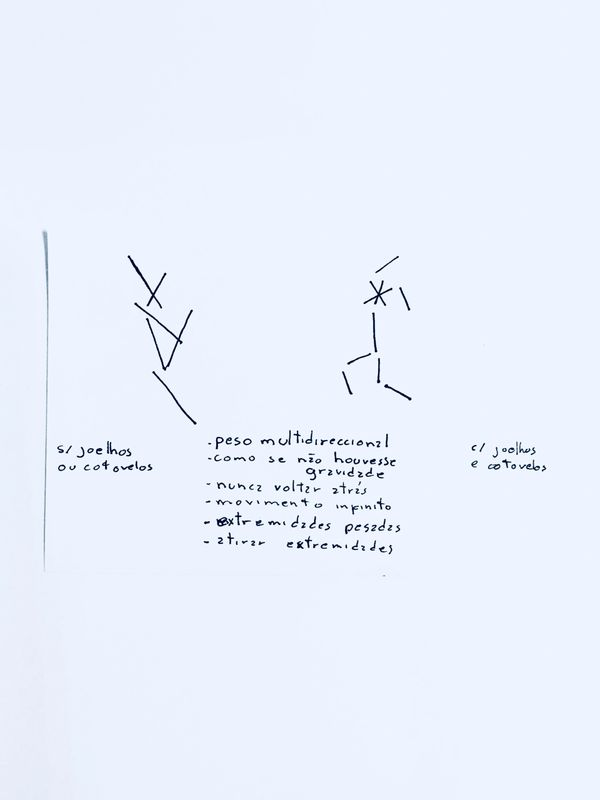 s/ joelhos
ou cotovelos
- peso multidireccional
- como se não houvesse
gravidade
- nunca voltar atrás
- movimento infinito
- extremidades pesadas
- atirar extremidades
c/ joelhos
e cotovelos